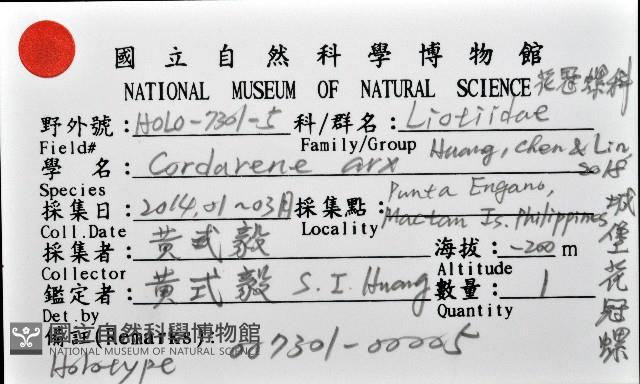 國立自然科學博物館
NATIONAL MUSEUM OF NATURAL SCIENCE 花冠螺科
野外號：HOLO-7301-5 科/群名：Liotiidae
Field# Family/Group Huang, Chen & Lin
學 名：Cordarene arx 2018
Species
採集日：2014.01~03月 採集點：Punta Engano, Mactan Is. Philippines
Coll.Date Locality
採集者：黃式毅 海拔：-200 m
Collector Altitude
鑑定者：黃式毅 S. I. Huang 數量：1
Det.by Quantity
城堡花冠螺
備註(Remarks): 007301-00005
Holotype
國立自然科學博物館
NATIONAL MUSEUM OF NATURAL SCIENCE